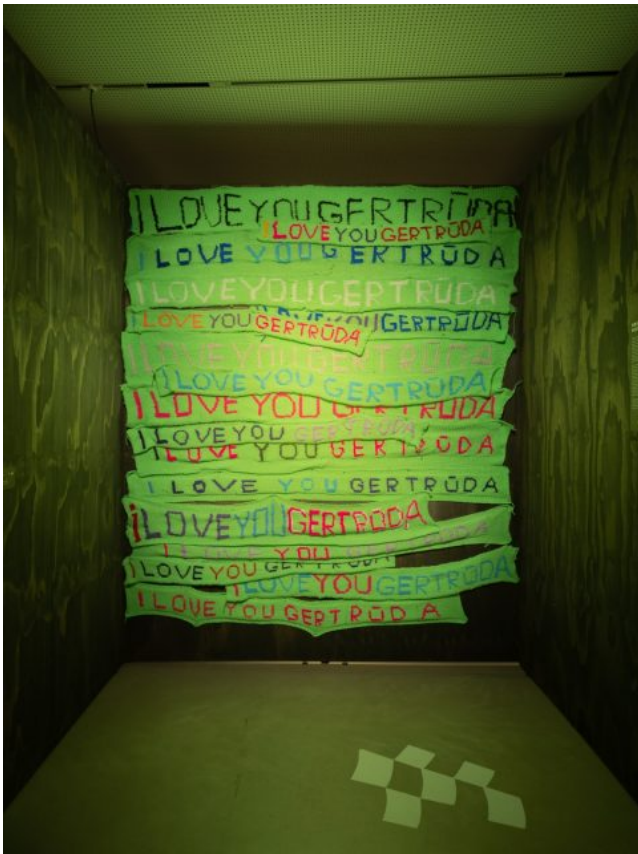 I LOVE YOU GERTRŪDA
I LOVE YOU GERTRŪDA
I LOVE YOU GERTRŪDA
I LOVE YOU GERTRŪDA
I LOVE YOU GERTRŪDA
I LOVE YOU GERTRŪDA
I LOVE YOU GERTRŪDA
I LOVE YOU GERTRŪDA
I LOVE YOU GERTRŪDA
I LOVE YOU GERTRŪDA
I LOVE YOU GERTRŪDA
I LOVE YOU GERTRŪDA
I LOVE YOU GERTRŪDA
i LOVE YOU GERTRŪDA
I LOVE YOU
I LOVE YOU GERTRŪDA
I LOVE YOU GERTRŪDA
I LOVE YOU GERTRŪDA